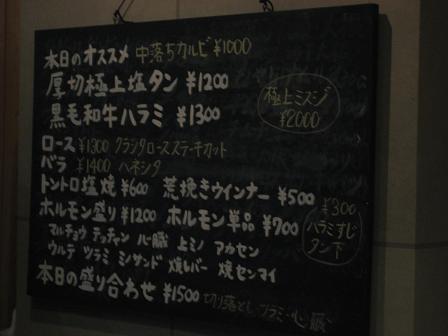 本日のオススメ 中落ちカルビ ¥1000
厚切極上塩タン ¥1200
極上ミスジ
¥2000
黒毛和牛ハラミ ¥1300
ロース ¥1300 クラシタロースステーキカット
バラ ¥1400 ハネシタ
トントロ塩焼 ¥600 荒挽きウインナー ¥500
¥300
ハラミすじ
タン下
ホルモン盛り ¥1200 ホルモン単品 ¥700
マルチョウ テッチャン 心臓 上ミノ アカセン
ウルテ ツラミ ミノサンド 焼レバー 焼センマイ
本日の盛り合わせ ¥1500 切り落とし ツラミ・心臓